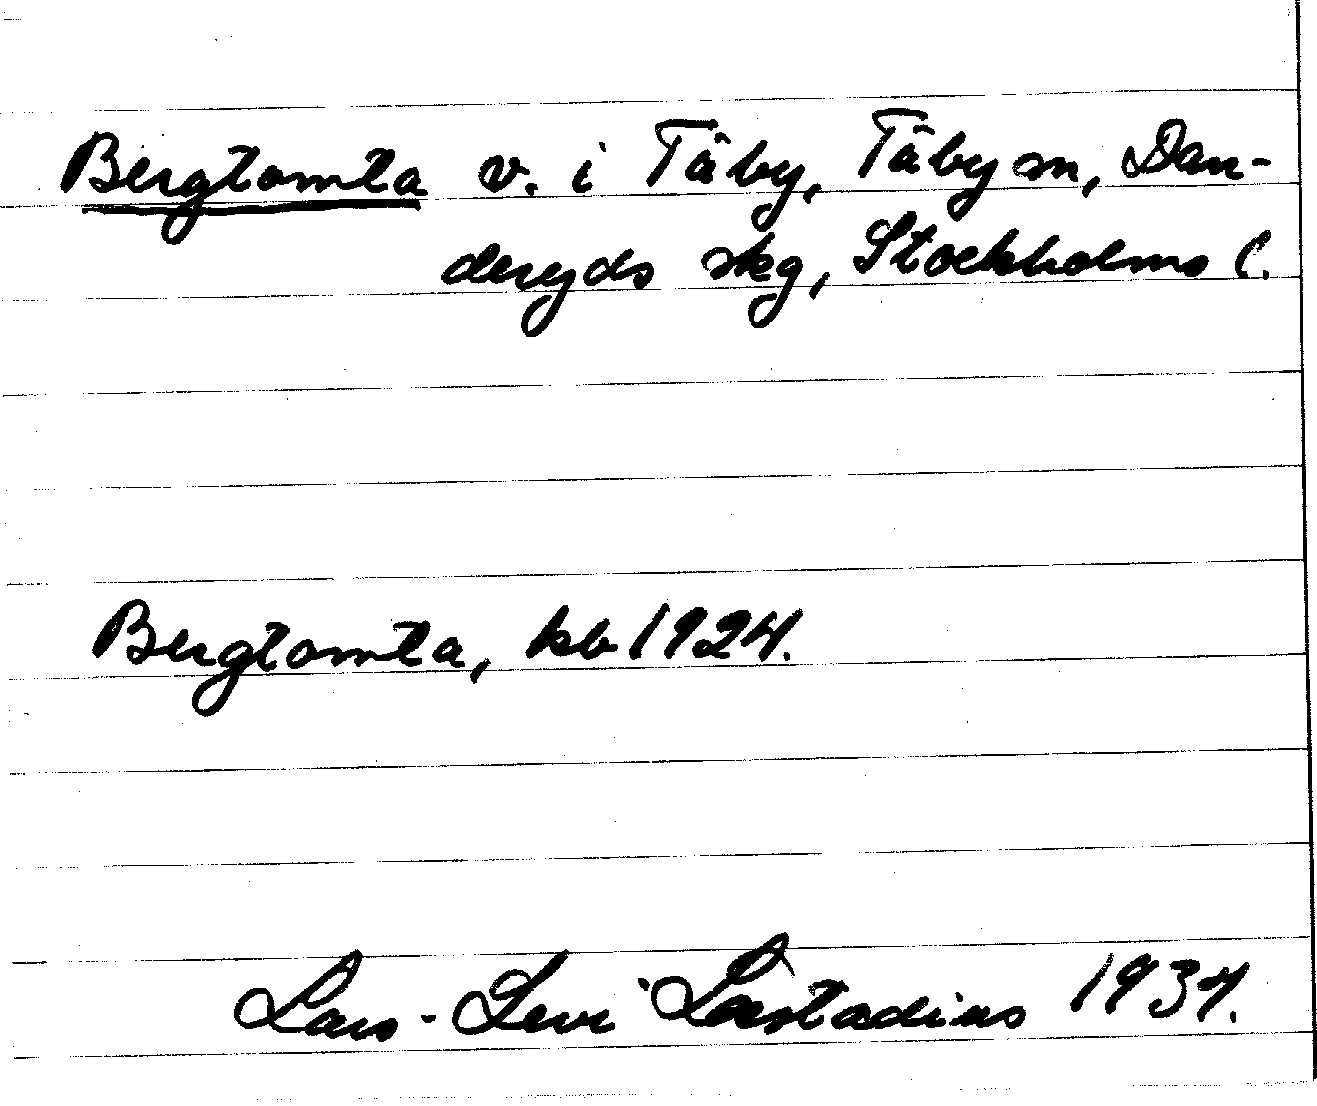 Bergtomta v. i Täby, Täby sn, Dan-
deryds skg, Stockholms l.
Bergtomta, kb 1924.
Lars-Levi Læstadius 1934.